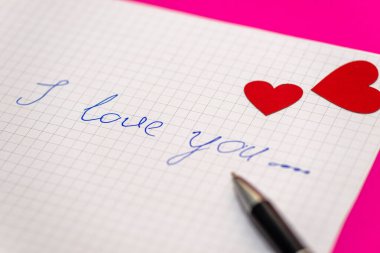 I love you....